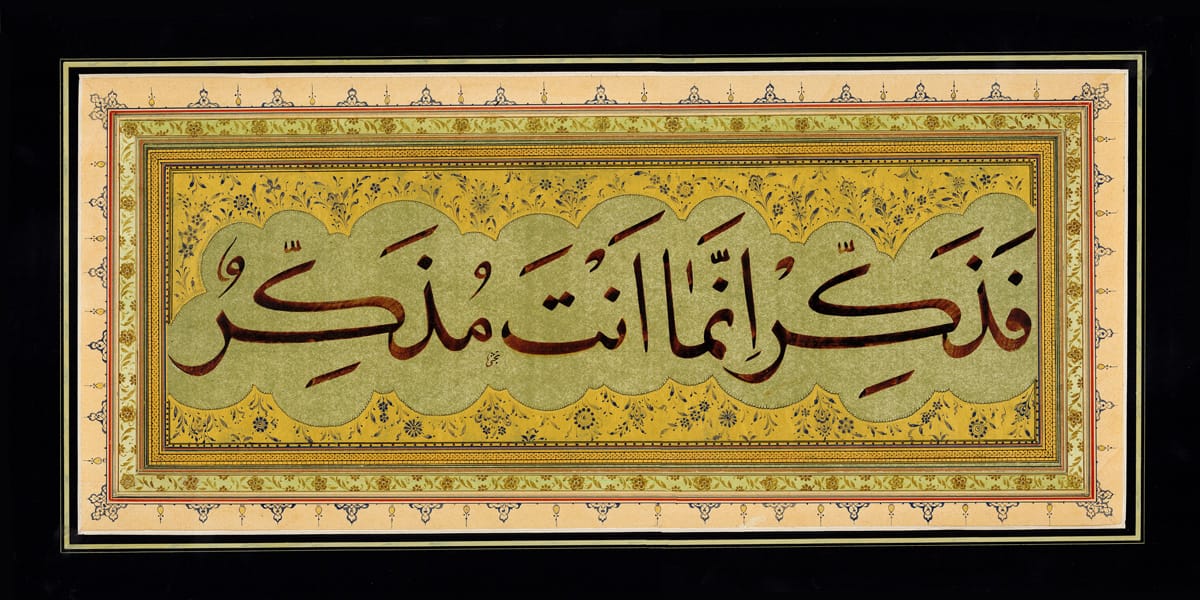 فَذَكِّرْ اِنَّمَٓا اَنْتَ مُذَكِّرٌ